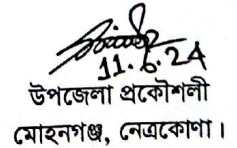 11.6.24
উপজেলা প্রকৌশলী
মোহনগঞ্জ, নেত্রকোণা।